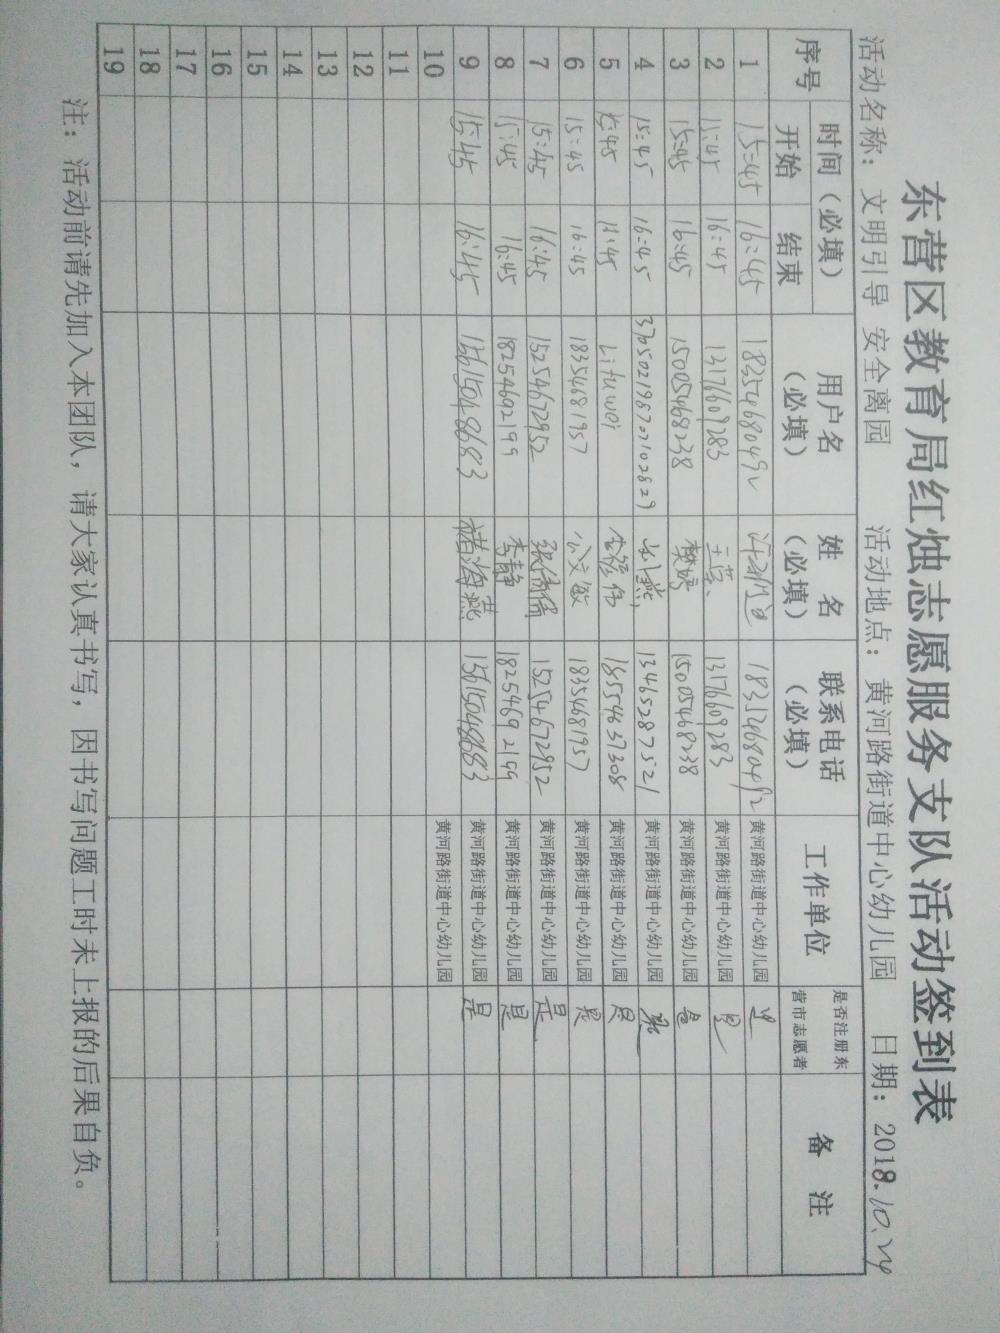 东营区教育局红烛志愿服务支队活动签到表
活动名称：文明引导 安全离园 活动地点：黄河路街道中心幼儿园 日期：2018.10.24
序号 时间（必填） 用户名（必填） 姓 名（必填） 联系电话（必填） 工作单位 是否注册东营市志愿者 备 注
开始 结束
1 15:45 16:45 18354680492 18354680492 黄河路街道中心幼儿园 是
2 15:45 16:45 13176609283 王蕊 13176609283 黄河路街道中心幼儿园 是
3 15:45 16:45 15005468238 樊婷 15005468238 黄河路街道中心幼儿园 是
4 15:45 16:45 13465287521 黄河路街道中心幼儿园 是
5 15:45 16:45 Lifuwei 18554637308 黄河路街道中心幼儿园 是
6 15:45 16:45 18354681957 公文敏 18354681957 黄河路街道中心幼儿园 是
7 15:45 16:45 15254672952 张倩倩 15254672952 黄河路街道中心幼儿园 是
8 15:45 16:45 18254692199 李静 18254692199 黄河路街道中心幼儿园 是
9 15:45 16:45 13615048683 褚海燕 13615048683 黄河路街道中心幼儿园 是
10 黄河路街道中心幼儿园
11
12
13
14
15
16
17
18
19
注：活动前请先加入本团队，请大家认真书写，因书写问题工时未上报的后果自负。